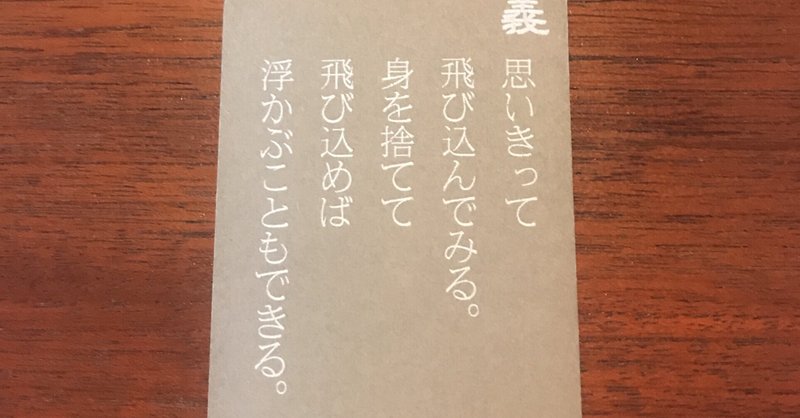 義
思いきって
飛び込んでみる。
身を捨てて
飛び込めば
浮かぶこともできる。